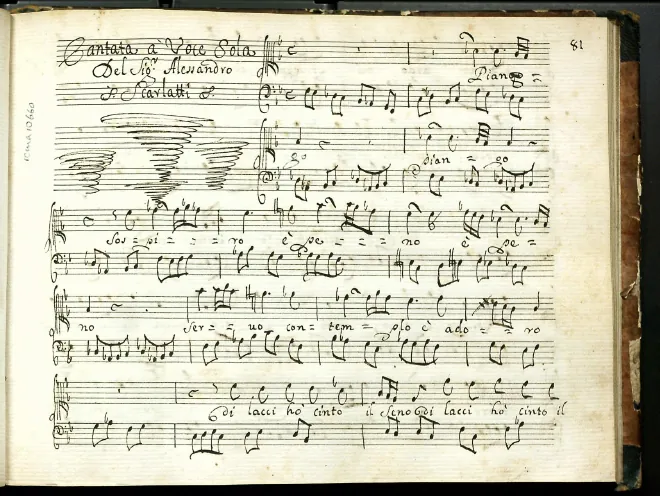 Cantata à Voce Sola
81
Del Sig.r Alessandro
Piange =
S. Scarlatti S.
go pian = go
sos = pi = = = ro è pe = = = no è pe =
no ser = = uo con = tem = plo è ado = = ro
di lacci hò cinto il seno di lacci hò cinto il